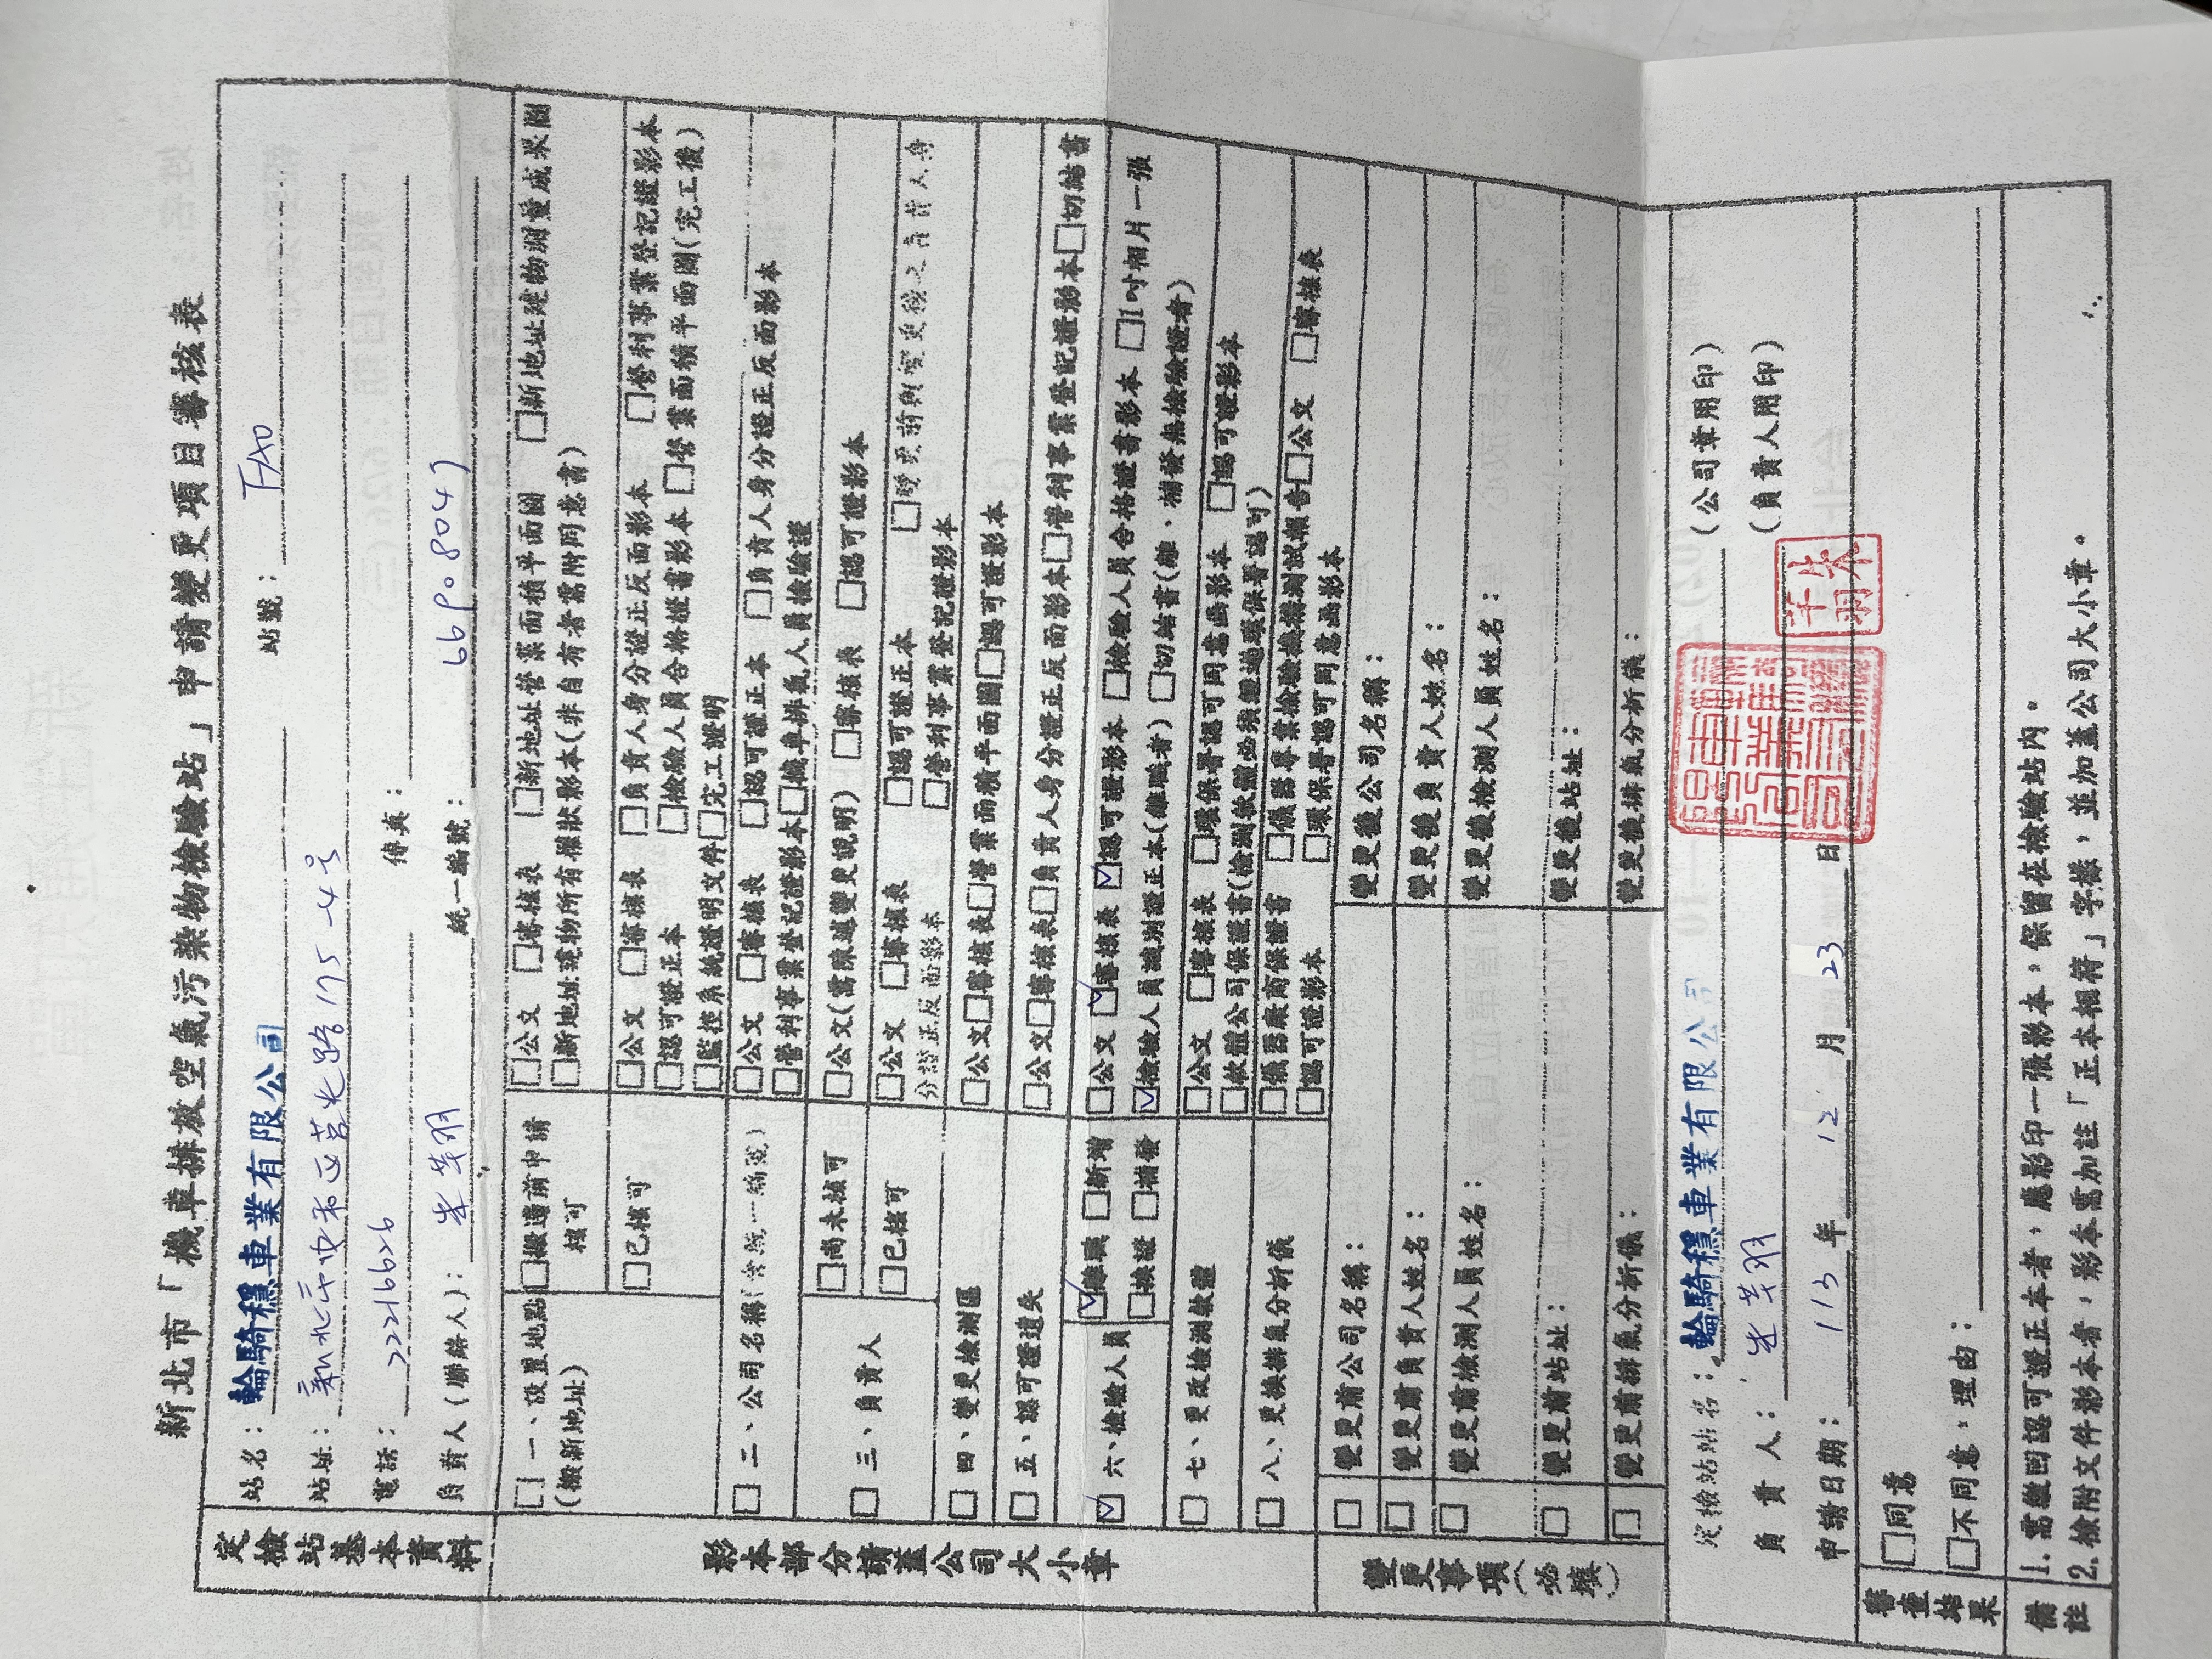 新北市「機車排放空氣污染物檢驗站」申請變更項目審核表
定檢站基本資料
站名：輪騎穩車業有限公司 站號：FA0
站址：新北市中和區莒光路175-4號
電話：22216626 傳真：
負責人(聯絡人)： 統一編號：
影本部分請蓋公司大小章
□一、設置地點(搬新地址)
□搬遷前申請核可
□公文 □審核表 □新地址營業面積平面圖 □新地址建物測量成果圖
□新地址建物所有權狀影本(非自有者需附同意書)
□已核可
□公文 □審核表 □負責人身分證正反面影本 □營利事業登記證影本
□認可證正本 □檢驗人員合格證書影本 □營業面積平面圖(完工後)
□監控系統證明文件□完工證明
□二、公司名稱(含統一編號)
□公文 □審核表 □認可證正本 □負責人身分證正反面影本
□營利事業登記證影本□機車排氣人員檢驗證
□三、負責人
□尚未核可
□公文(需陳述變更說明) □審核表 □認可證影本
□已核可
□公文 □審核表 □認可證正本 □變更前與變更後之負責人身
分證正反面影本 □營利事業登記證影本
□四、變更檢測區
□公文□審核表□營業面積平面圖□認可證影本
□五、認可證遺失
□公文□審核表□負責人身分證正反面影本□營利事業登記證影本□切結書
☑六、檢驗人員
☑離職 □新增
□換證 □補發
□公文 ☑審核表 ☑認可證影本 □檢驗人員合格證書影本 □1吋相片一張
☑檢驗人員識別證正本(離職者) □切結書(離、補發無檢驗證者)
□七、更改檢測軟體
□公文 □審核表 □環保署認可同意函影本 □認可證影本
□軟體公司保證書(檢測軟體必須經過環保署認可)
□八、更換排氣分析儀
□儀器廠商保證書 □儀器專業檢驗機構測試報告□公文 □審核表
□認可證影本 □環保署認可同意函影本
變更事項(必填)
□ 變更前公司名稱： 變更後公司名稱：
□ 變更前負責人姓名： 變更後負責人姓名：
□ 變更前檢測人員姓名： 變更後檢測人員姓名：
□ 變更前站址： 變更後站址：
□ 變更前排氣分析儀： 變更後排氣分析儀：
定檢站站名：輪騎穩車業有限公司 (公司章用印)
負責人： (負責人用印)
申請日期：113年12月23日
審查結果
□同意
□不同意，理由：
備註
1.需繳回認可證正本者，應影印一張影本，保留在檢驗站內。
2.檢附文件影本者，影本需加註「正本相符」字樣，並加蓋公司大小章。